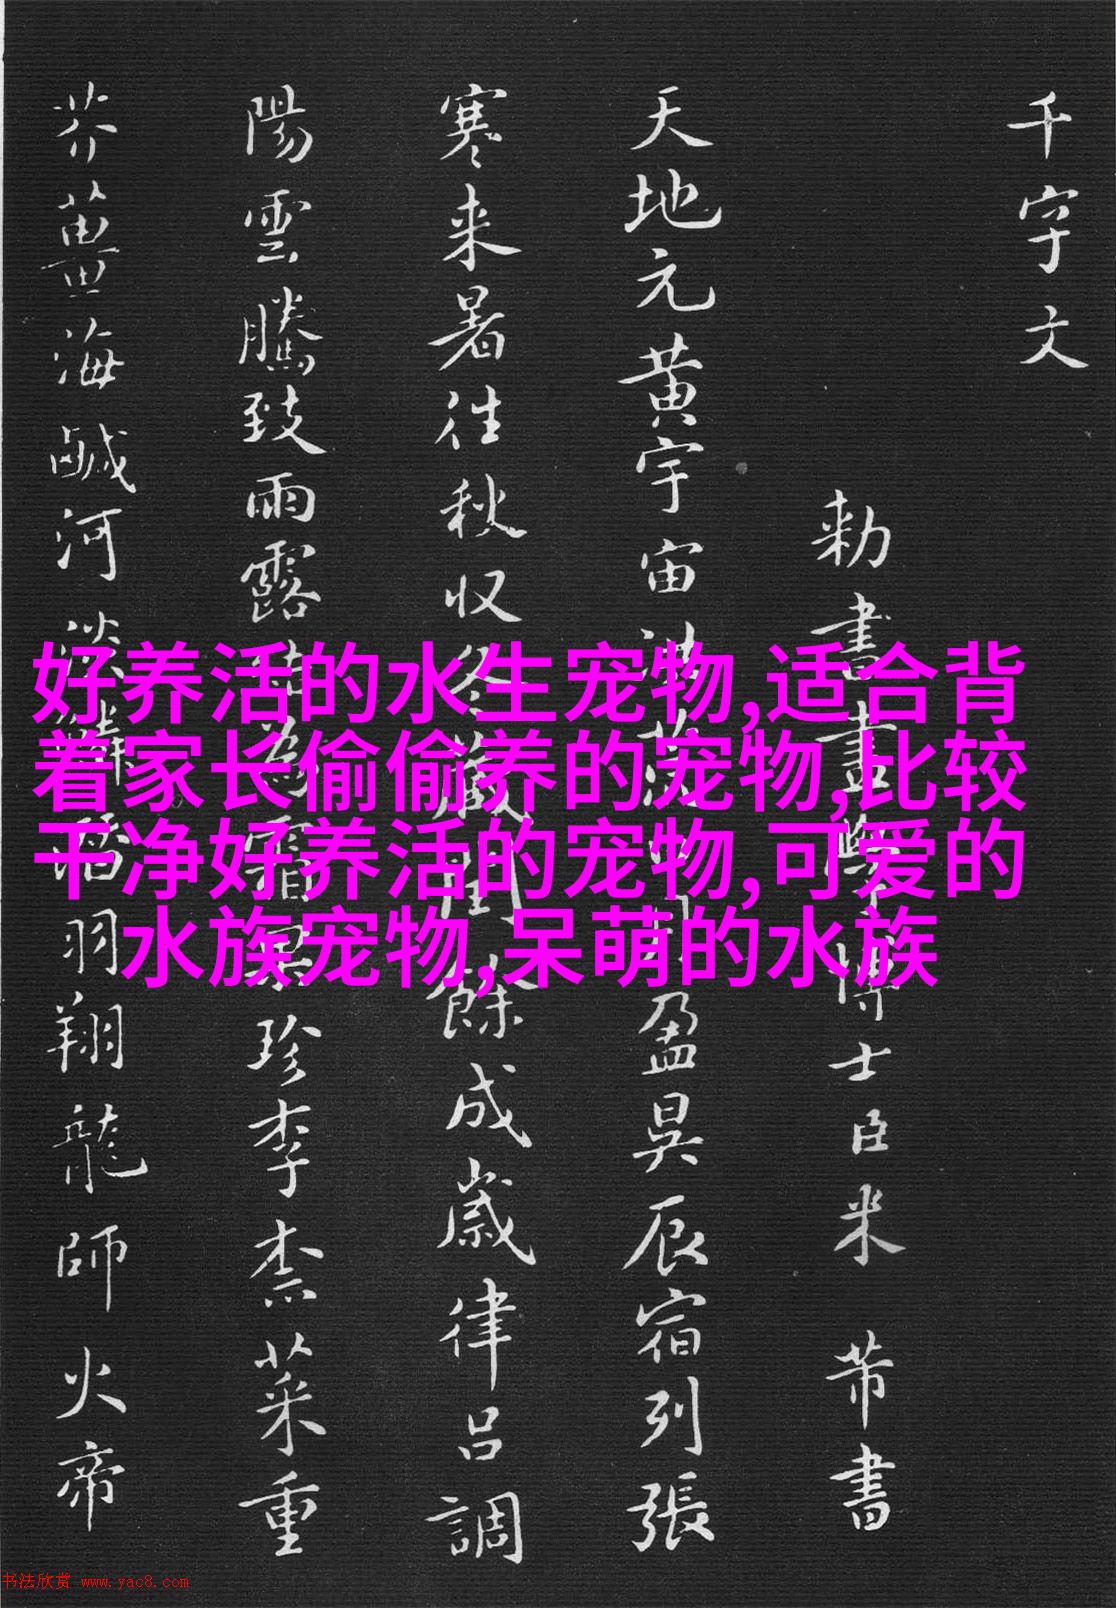 千字文
勅書畫學博士臣米芾書
天地元黄宇宙洪荒日月盈昃辰宿列張
寒来暑往秋収冬蔵閏餘成歳律呂調
陽雲騰致雨露結為霜果珍李柰菜重
芥薑海鹹河淡鱗潛羽翔龍師火帝
好养活的水生宠物,适合背
着家长偷偷养的宠物,比较
干净好养活的宠物,可爱的
水族宠物,呆萌的水族
书法欣赏 www.yac8.com